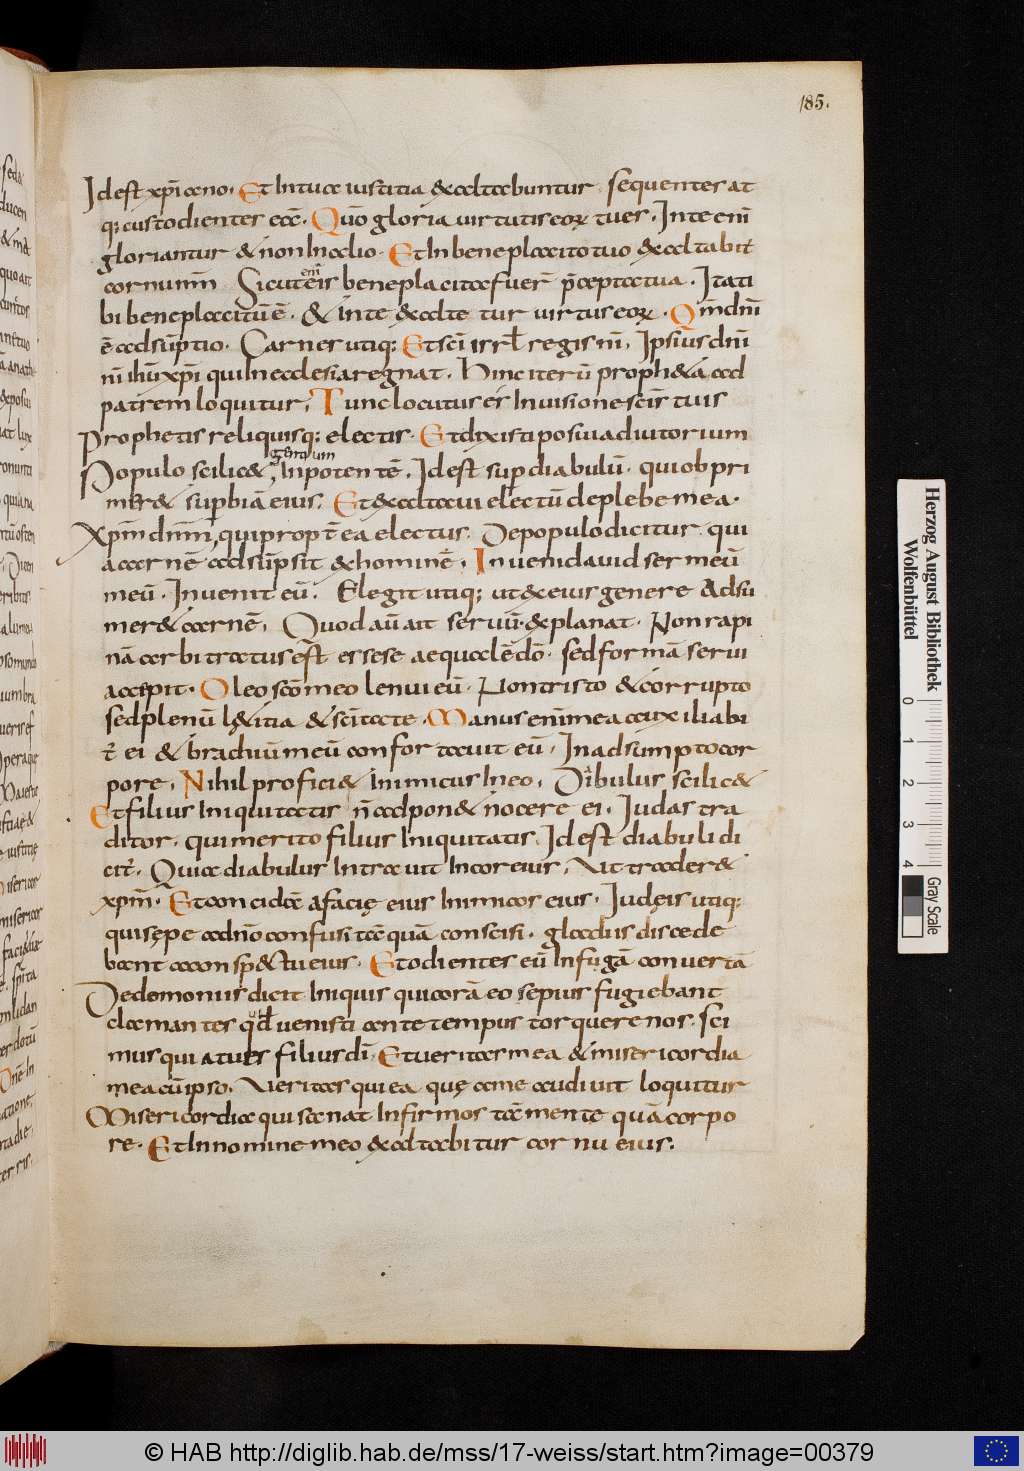 185.
Id est xp̄iano. Et In tua iustitia & exaltabuntur sequenter at
q; custodienter eā. Qūo gloria uirtutis eoꝝ tu es. In te eni͞
gloriantur & non In odio. Et In beneplacito tuo exaltabit̄
cornu nr̄m Sicut enī eis bene placita fuer̄ p̄cepta tua. Ita ti
bi beneplacitū ē. & in te exaltetur uirtus eoꝝ. Qm̄ dn̄i
ē adsūptio. Carnis utiq; Et sc̄i isrl̄ regis nr̄i, Ipsius dn̄i
nr̄i ihū xp̄i qui In ecclesia regnat. Hinc iterū proph&a ad
patrem loquitur, Tunc locutus es In uisione sc̄is tuis
Prophetis reliquisq; electis. Et dixisti posui adiutorium
Populo scilic& gentium In potentē. Id est sup diabulū. qui ob pri
mer& supbiā eius. Et exaltaui electū de plebe mea.
Xpm̄ dn̄m, qui propt̄ ea electus. De populo dicitur qui
a carnē adsūpsit & hominē. Inueni dauid ser meū
meū. Inuenit eū. Elegit utiq; ut ex eius genere Adsu
mer& carnē, Quod aū ait seruū. explanat. Non rapi
nā arbitratus est esse se aequalē dō. sed formā serui
accepit. Oleo sc̄o meo leniui eū. Non tristo & corrupto
sed plenū l&itia & sc̄itate. Manus enī mea auxiliabi
t̄ ei & brachiū meū confortauit eū. In adsumpto cor
pore. Nihil profici& Inimicus In eo. Diabulus scilic&
Et filius Iniquitatis n̄ adpon& nocere ei. Iudas tra
ditor. qui merito filius Iniquitatis. Id est diabuli di
cit̄. Quia diabulus Intrauit In cor eius, Vt trader&
xpm̄. Et concidā a facię eius Inimicos eius. Iudęis utiq;
qui sępe ad nō confusi tā quā conscisi. gladius discede
bant a conspectu eius. Et odientes eū In fugā conuertā
De demoniis dicit Iniquis qui corā eo sepius fugiebant
clamantes qd̄ uenisti ante tempus torquere nos. sci
mus quia tu es filius dī. Et ueritas mea & misericordia
mea cū ipso. Ueritas quia quę a me audiuit loquitur
Misericordia qui sanat Infirmos tā mente quā corpo
re. Et In nomine meo exaltabitur cornu eius.
Herzog August Bibliothek
Wolfenbüttel
0 1 2 3 4
Gray Scale
© HAB http://diglib.hab.de/mss/17-weiss/start.htm?image=00379